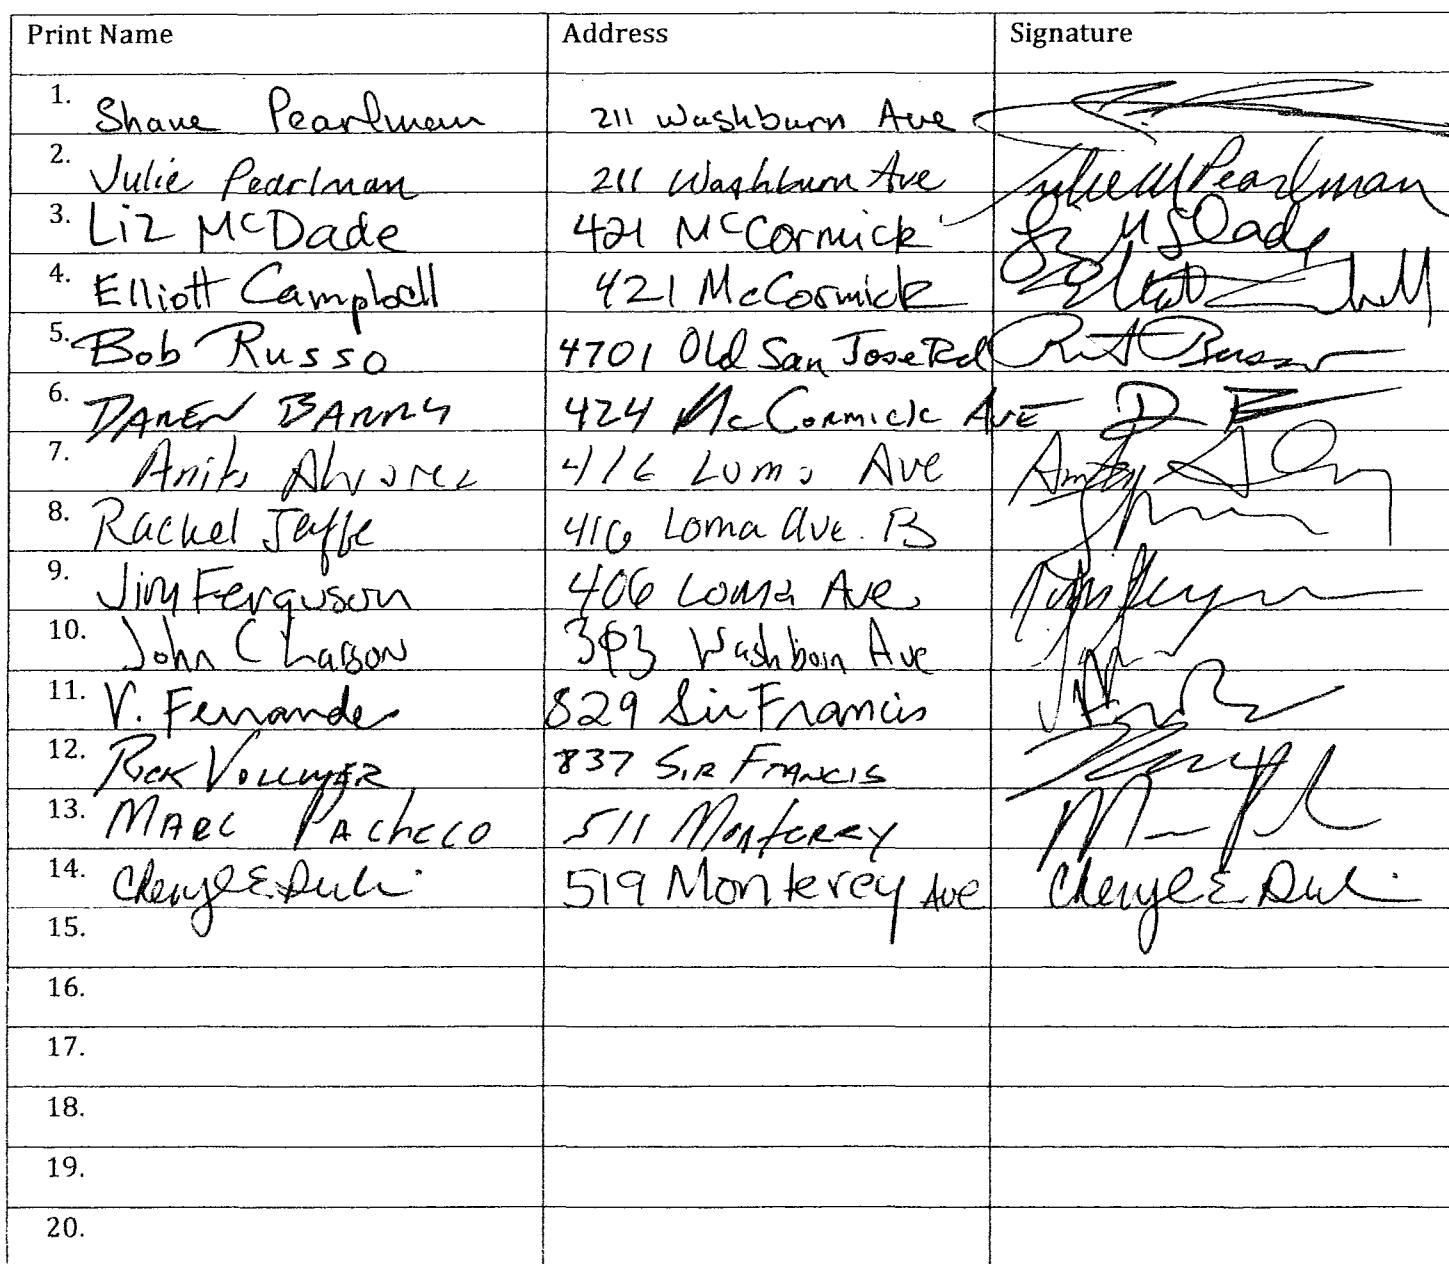 Print Name Address Signature
1. Shane Pearlman 211 Washburn Ave
2. Julie Pearlman 211 Washburn Ave Julie M Pearlman
3. Liz McDade 421 McCormick Liz McDade
4. Elliott Campbell 421 McCormick
5. Bob Russo 4701 Old San Jose Rd Russo
6. DAREN BARRY 424 McCORMICK AVE D B
7. Anita Alvarez 416 Loma Ave
8. Rachel Jaffe 416 Loma Ave. B
9. Jim Ferguson 406 Loma Ave
10. John C Larson Washburn Ave
11. V. Fernandes 829 Sir Francis
12. RICK VOLLMER 837 SIR FRANCIS
13. MARC PACHECO 511 MONTEREY
14. Cheryl E. 519 Monterey Ave Cheryl E
15.
16.
17.
18.
19.
20.